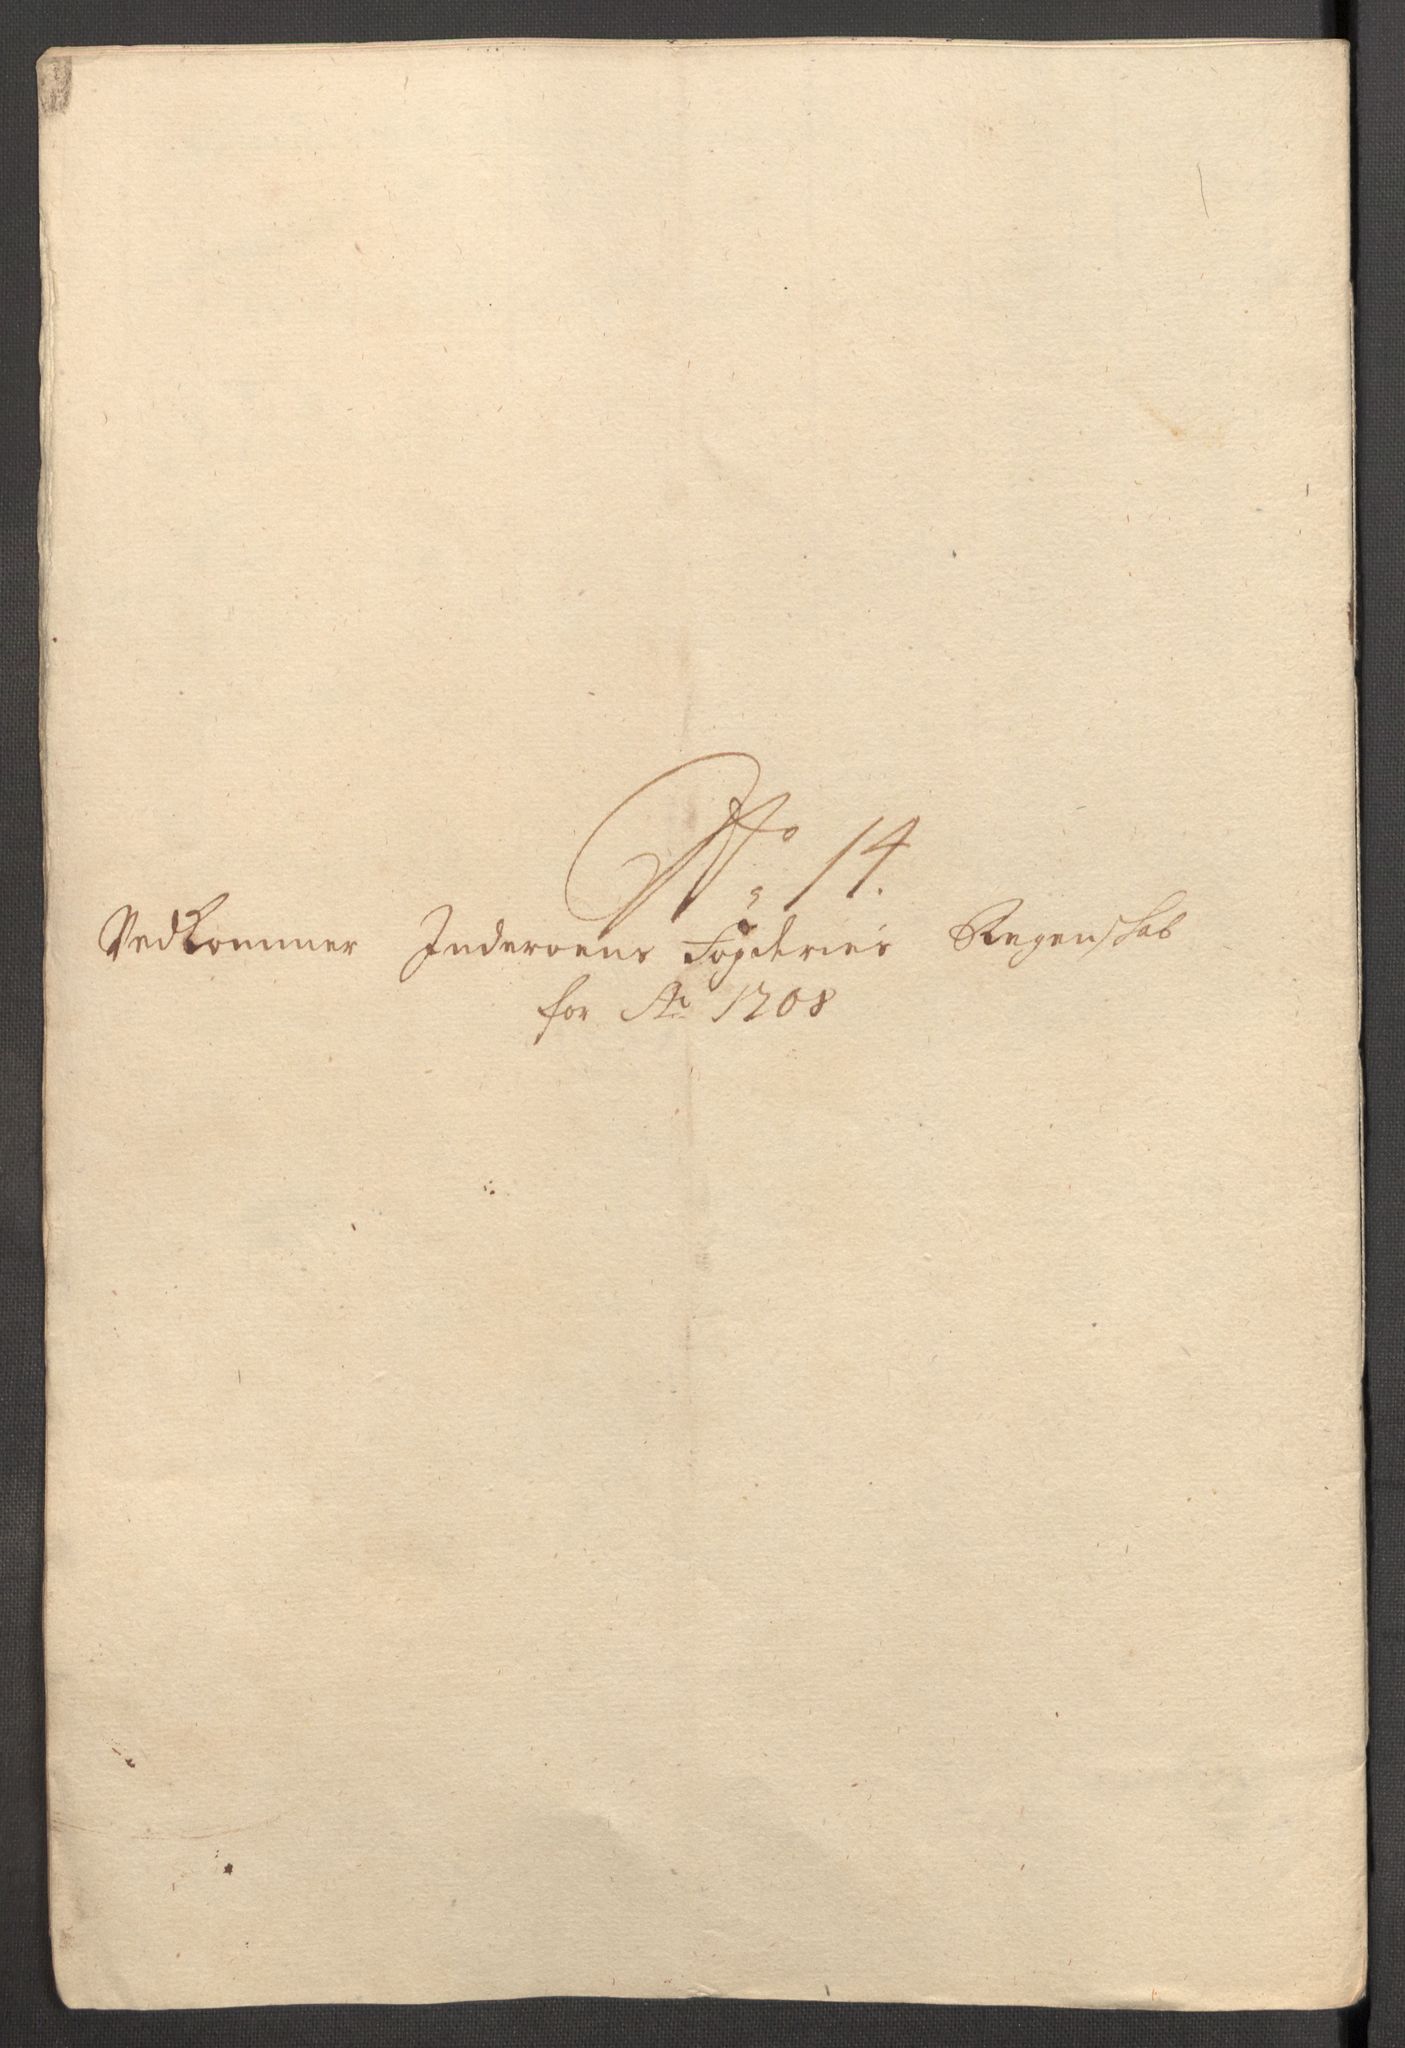 No: 14.
Vedkommer Inderoens Fogderie's Regenskab
for Ao 1708